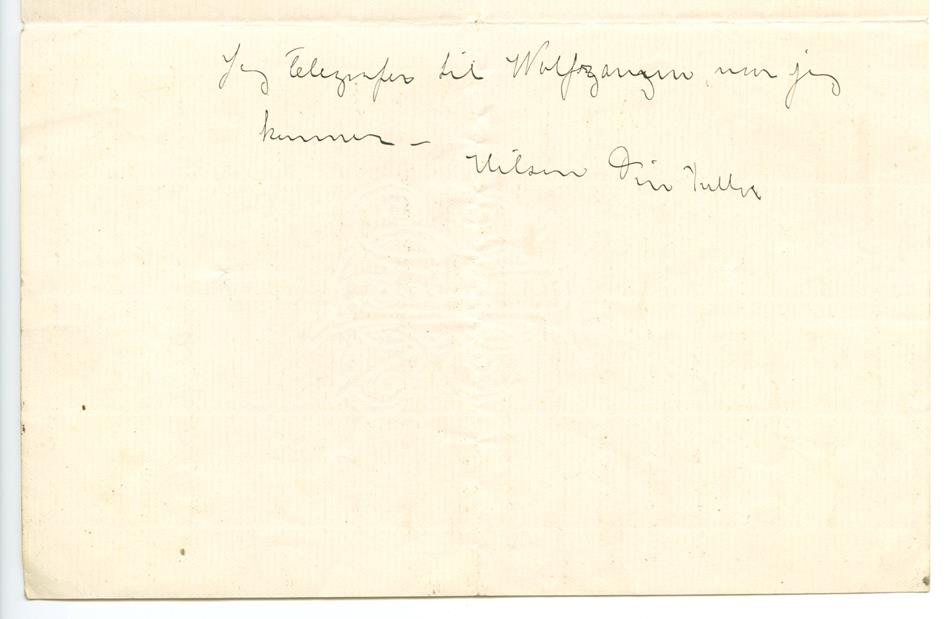 Jeg telegrafer til Wolfszangen, naar jeg
kommer –
Hilsen Din Tulla